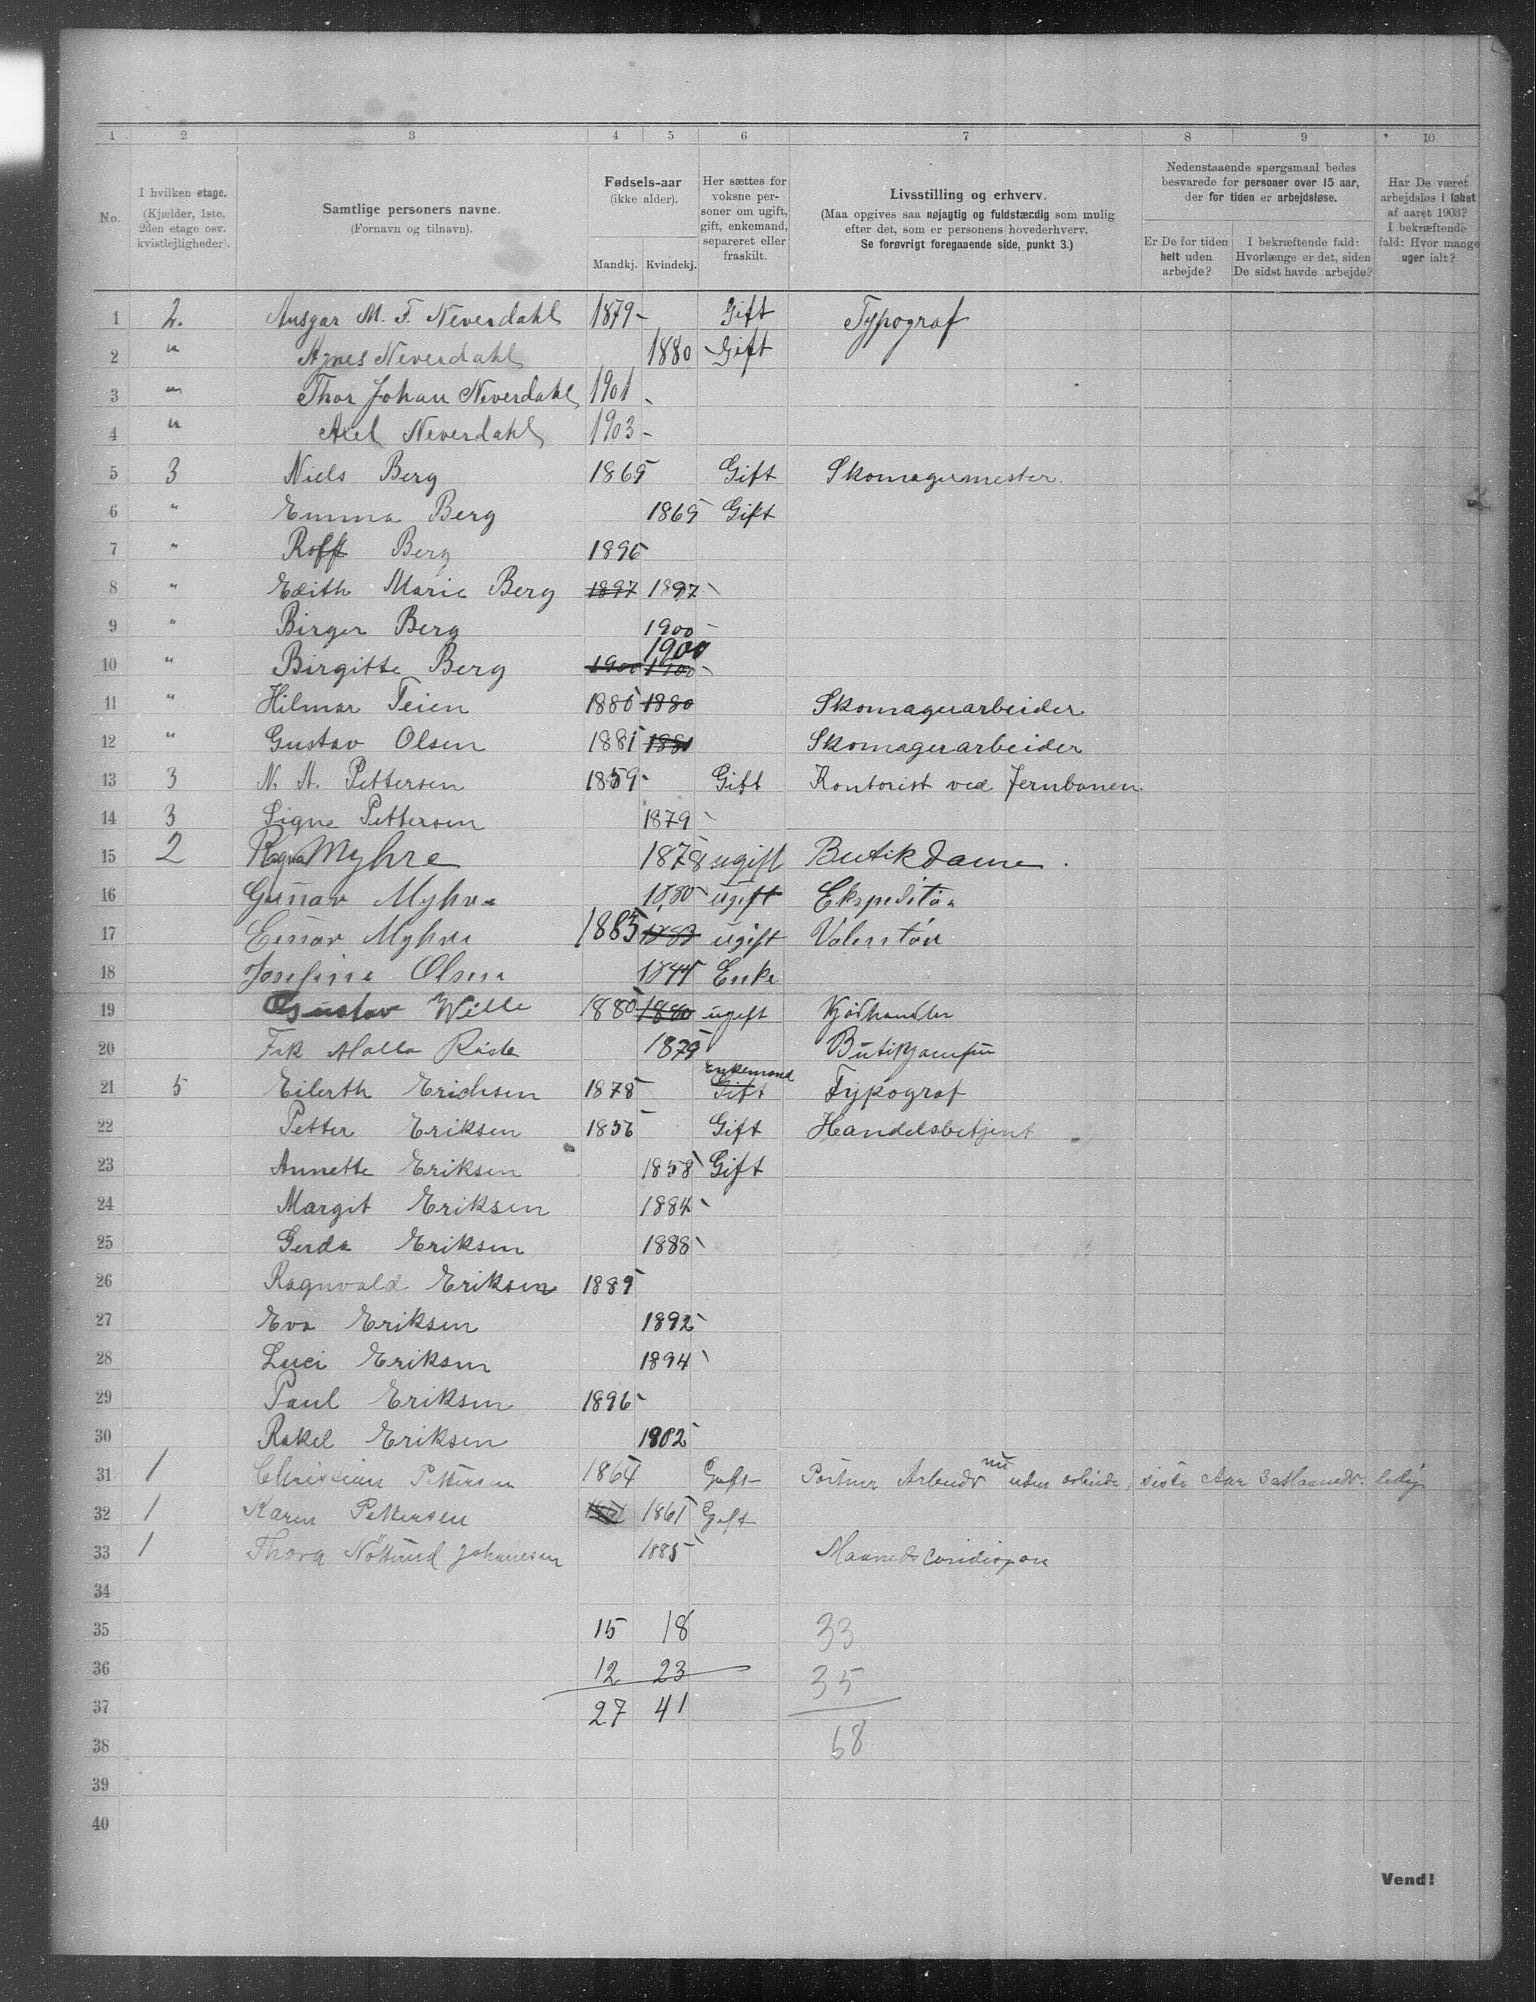 1 2 3 4 5 6 7 8 9 10
No.
I hvilken etage. (Kjælder, 1ste, 2den etage osv. kvistlejligheder).
Samtlige personers navne. (Fornavn og tilnavn).
Fødsels-aar (ikke alder). Mandkj. Kvindekj.
Her sættes for voksne personer om ugift, gift, enkemand, separeret eller fraskilt.
Livsstilling og erhverv. (Maa opgives saa nøjagtig og fuldstærdig som mulig efter det, som er personens hovederhverv. Se forøvrigt foregaaende side, punkt 3.)
Nedenstaaende spørgsmaal bedes besvarede for personer over 15 aar, der for tiden er arbejdsløse.
Er De for tiden helt uden arbejde?
I bekræftende fald: Hvorlænge er det, siden De sidst havde arbejde?
Har De været arbejdsløs i løbet af aaret 1903? I bekræftende fald: Hvor mange uger ialt?
1 2. Ansgar M. F. Neverdahl 1879 Gift Typograf
2 " Agnes Neverdahl 1880 Gift
3 " Thor Johan Neverdahl 1901
4 " Axel Neverdahl 1903
5 3 Niels Berg 1865 Gift Skomagermester.
6 " Emma Berg 1865 Gift
7 " Roff Berg 1895
8 " Edith Marie Berg 1897 1897
9 " Birger Berg 1900
1900
10 " Birgitte Berg 1900 1900
11 " Hilmar Teien 1880 1880 Skomagerarbeider
12 " Gustav Olsen 1881 1881 Skomagerarbeider
13 3 N. A. Pettersen 1859 Gift Kontorist ved Jernbanen.
14 3 Signe Pettersen 1879
15 2 Ragna Myhre 1878 ugift Butikdame.
16 Gunnar Myhre 1880 ugift Ekspeditør
17 Einar Myhre 1883 1883 ugift Volentør
18 Josefine Olsen 1844 Enke
19 Gustav Wille 1880 1880 ugift Kjødhandler
20 Frk 1879 Butikjomfru
Enkemand
21 5 Eilerth Erichsen 1878 Gift Typograf
22 Petter Eriksen 1856 Gift Handelsbetjent
23 Annette Eriksen 1858 Gift
24 Margit Eriksen 1884
25 Gerda Eriksen 1888
26 Ragnvald Eriksen 1889
27 Eva Eriksen 1892
28 Luci Eriksen 1894
29 Paul Eriksen 1896
30 Rakel Eriksen 1902
31 1 Christian Pettersen 1864 Gift Portner Arbeider nu uden arbeide, siste Aar 3 Maaneder ledig
32 1 Karen Pettersen 1861 Gift
33 1 Thora Johannesen 1885
34
35 15 18 33
36 12 23 35
37 27 41
38 68
39
40
Vend!